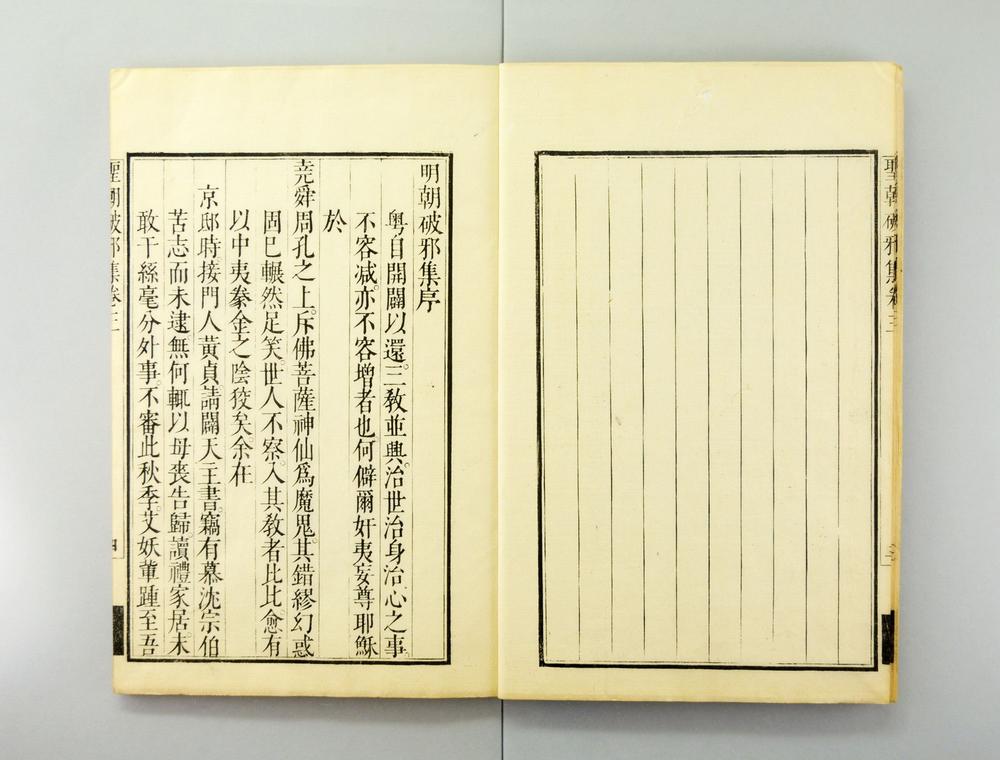 聖朝破邪集卷三
明朝破邪集序
粵自開闢以還。三敎並興。治世治身治心之事
不容减。亦不容增者也何僻爾奸夷妄尊耶穌
於
尭舜周孔之上。斥佛菩薩神仙爲魔鬼。其錯繆幻惑
固已輾然足笑。世人不察。入其敎者比比愈有
以中夷豢金之陰狡矣余在
京邸時接門人黃貞請闢天主書。竊有慕沈宗伯
苦志而未逮。無何輒以母喪告歸。讀禮家居。未
敢干絲毫分外事。不審此秋季。艾妖輩踵至吾
聖朝破邪集卷三
四